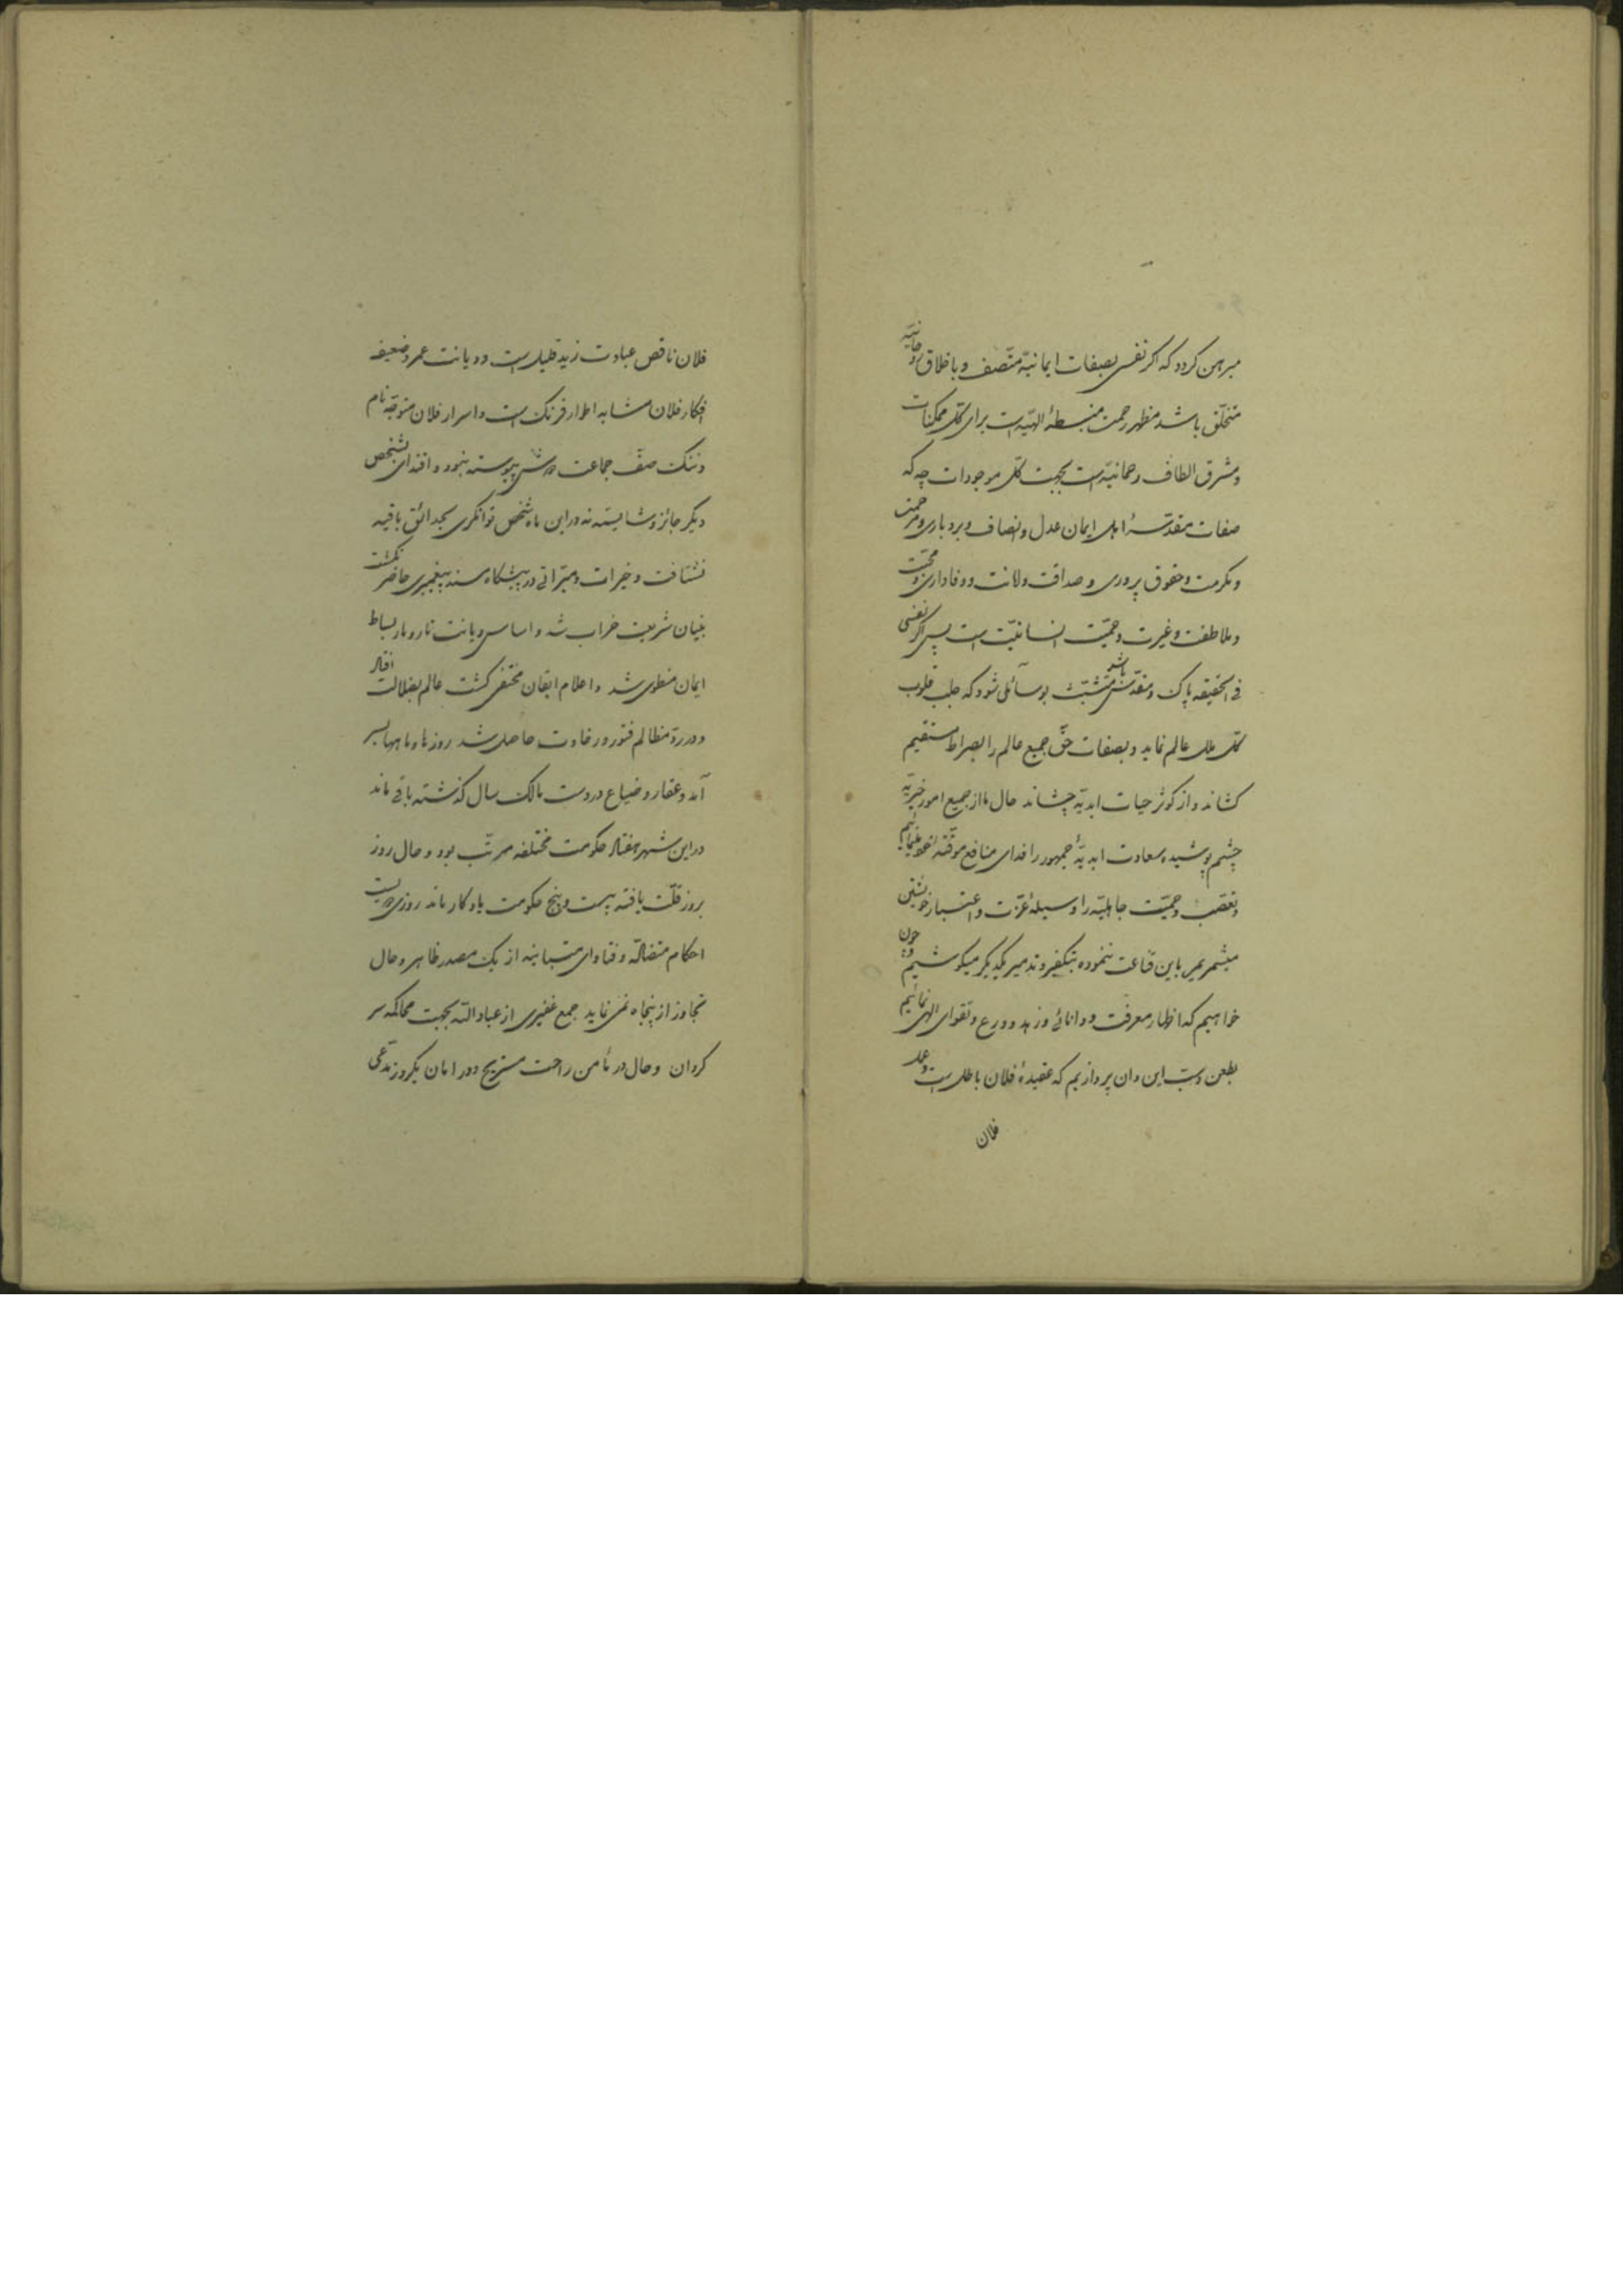 مبرهن کردد که اکر نفسی بصفات ایمانیّه متّصف و باخلاق روحانیّه
متخلّق باشد مظهر رحمت منبسطهٔ الهیّه است برای کلّ ممکنات
و مشرق الطاف رحمانیّه است بجهت کلّ موجودات چه که
صفات مقدّسهٔ اهل ایمان عدل و انصاف و بردباری و مرحمت
و مکرمت و حقوق پروری و صداقت و امانت و وفاداری و محبّت
و ملاطفت و غیرت و حمیّت و انسانیّت است پس اکر نفسی
فی الحقیقه پاک و مقدّس باشد متشبّث بوسائلی شود که جلب قلوب
کلّ ملل عالم نماید و بصفات حقّ جمیع عالم را بصراط مستقیم
کشاند و از کوثر حیات ابدیّه چشاند حال ما از جمیع امور خیریّه
چشم پوشیده سعادت ابدیّهٔ جمهور را فدای منافع موقّته خود مینمائیم
و تعصّب و حمیّت جاهلیّه را وسیلهٔ عزّت و اعتبار خویشتن
میشمریم باین قناعت ننموده بتکفیر و تدمیر یکدیکر میکوشیم و چون
خواهیم که اظهار معرفت و دانائی و زهد و ورع و تقوای الهی نمائیم
بطعن و سبّ این و ان پردازیم که عقیدهٔ فلان باطل است و عمل
فلان
فلان ناقص عبادت زید قلیل است و دیانت عمرو ضعیف
افکار فلان مشابه اطوار فرنک است و اسرار فلان متوجّه نام
و ننک صفّ جماعت دوش پیوسته نبود و اقتدای بشخص
دیکر جائز و شایسته نه در این ماه شخص توانکری بحدائق باقیه
نشتافت و خیرات و مبرّاتی در پیشکاه مسند پیغمبری حاضر نکشت
بنیان شریعت خراب شد و اساس دیانت تارومار بساط
ایمان منطوی شد و اعلام ایقان مختفی کشت عالم بضلالت افتاد
و در ردّ مظالم فتور و رخاوت حاصل شد روزها و ماهها بسر
آمد و عقار و ضیاع در دست مالک سال کذشته باقی ماند
در این شهر هفتاد حکومت مختلفه مرتّب بود و حال روز
بروز قلّت یافته بیست و پنج حکومت یادکار ماند روزی دویست
احکام متضادّه و فتاوای متباینه از یک مصدر ظاهر و حال
تجاوز از پنجاه نمی نماید جمع غفیری از عباد اللّه بجهت محاکمه سر
کردان و حال در مأمن راحت مستریح و در امان یکروز مدّعی